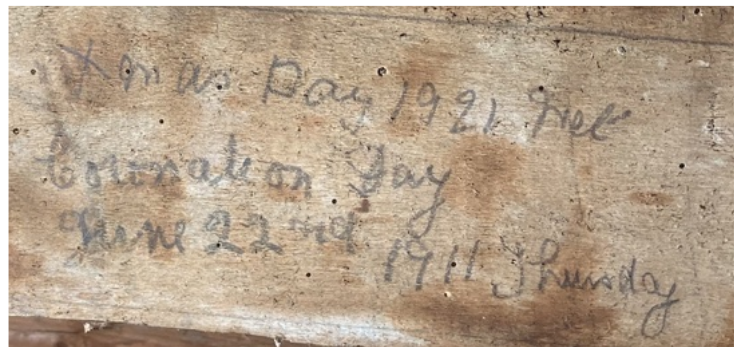 Xmas Day 1921 Wet
Coronation Day
June 22nd 1911 Thursday